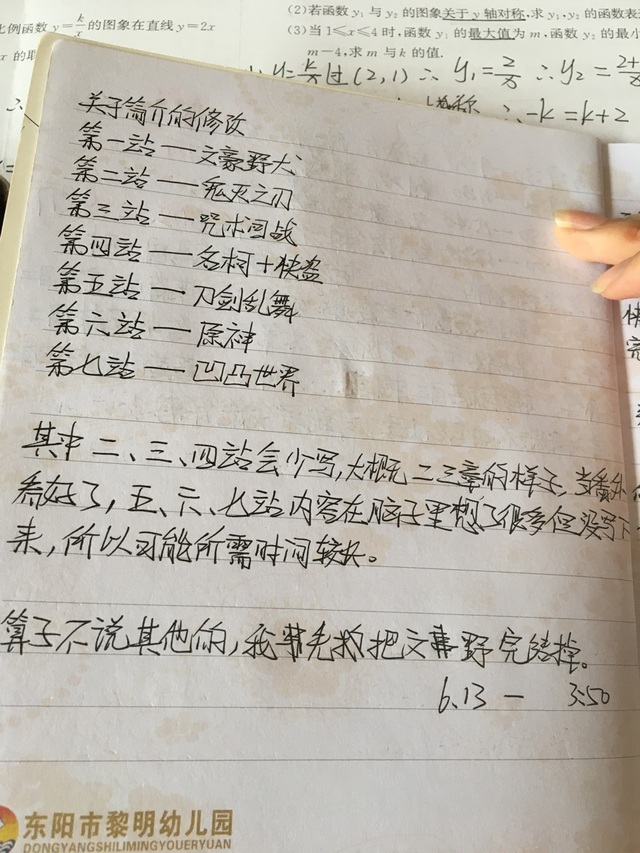 (2)若函数 y₁ 与 y₂ 的图象关于 y 轴对称,求 y₁,y₂ 的函数表
比例函数 y=k/x 的图象在直线 y=2x
(3)当 1≤x≤4 时,函数 y₁ 的最大值为 m,函数 y₂ 的最小
m-4,求 m 与 k 的值.
x 的取
∴ y=k/x过(2,1) ∴ y₁=2/x ∴ y₂=
∴-k=k+2
关于简介的修改
第一站——文豪野犬
第二站——鬼灭之刃
第三站——咒术回战
第四站——名柯+快盗
第五站——刀剑乱舞
第六站——原神
第七站——凹凸世界
其中二、三、四站会少写,大概二三章的样子,当番外
看好了,五、六、七站内容在脑子里想了很多但没写下
来,所以可能所需时间较长。
算了不说其他的,我先把文野完结掉。
6.13 — 3:50
东阳市黎明幼儿园
DONGYANGSHILIMINGYOUERYUAN